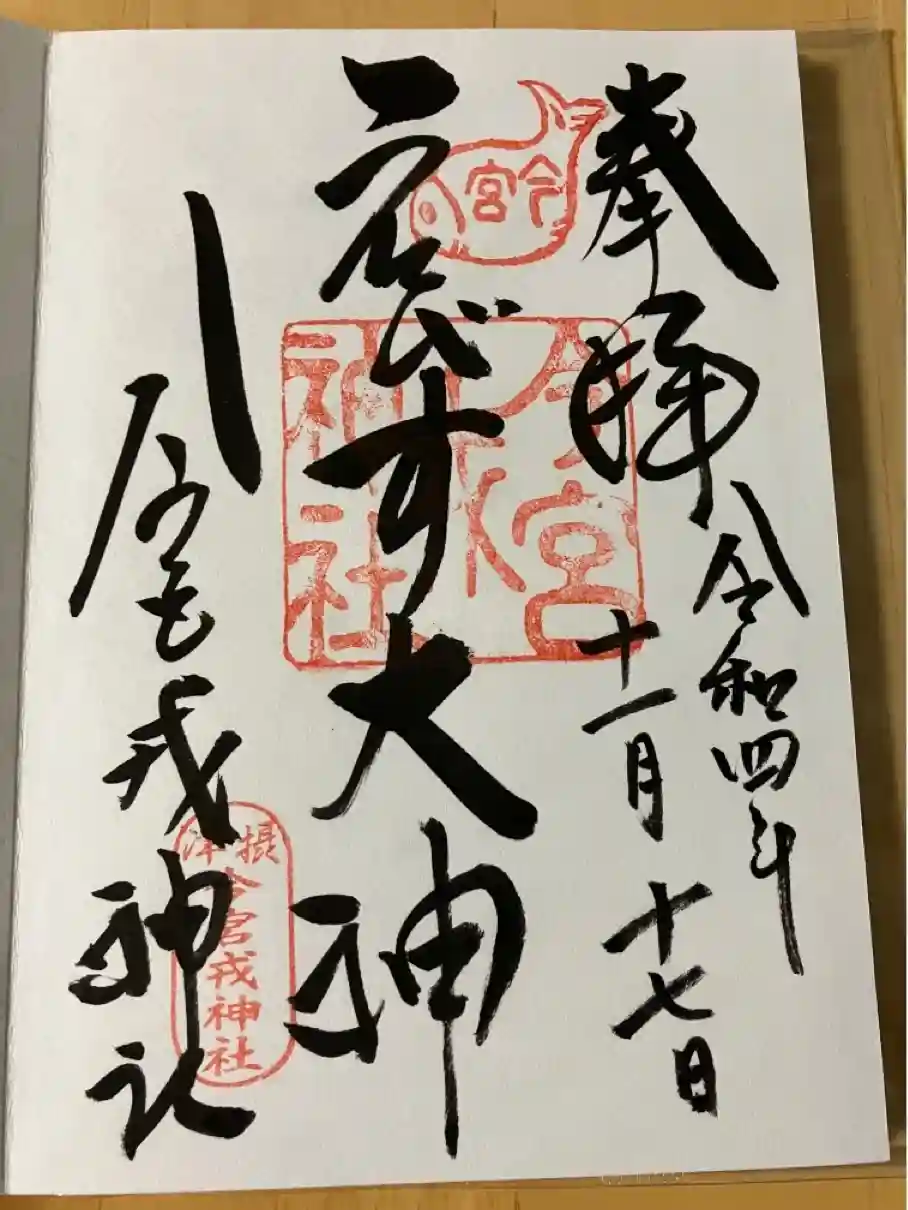 奉拝
令和四年
十一月十七日
今宮
ゑびす大神
今宮戎神社
今宮戎神社
摂津
今宮戎神社